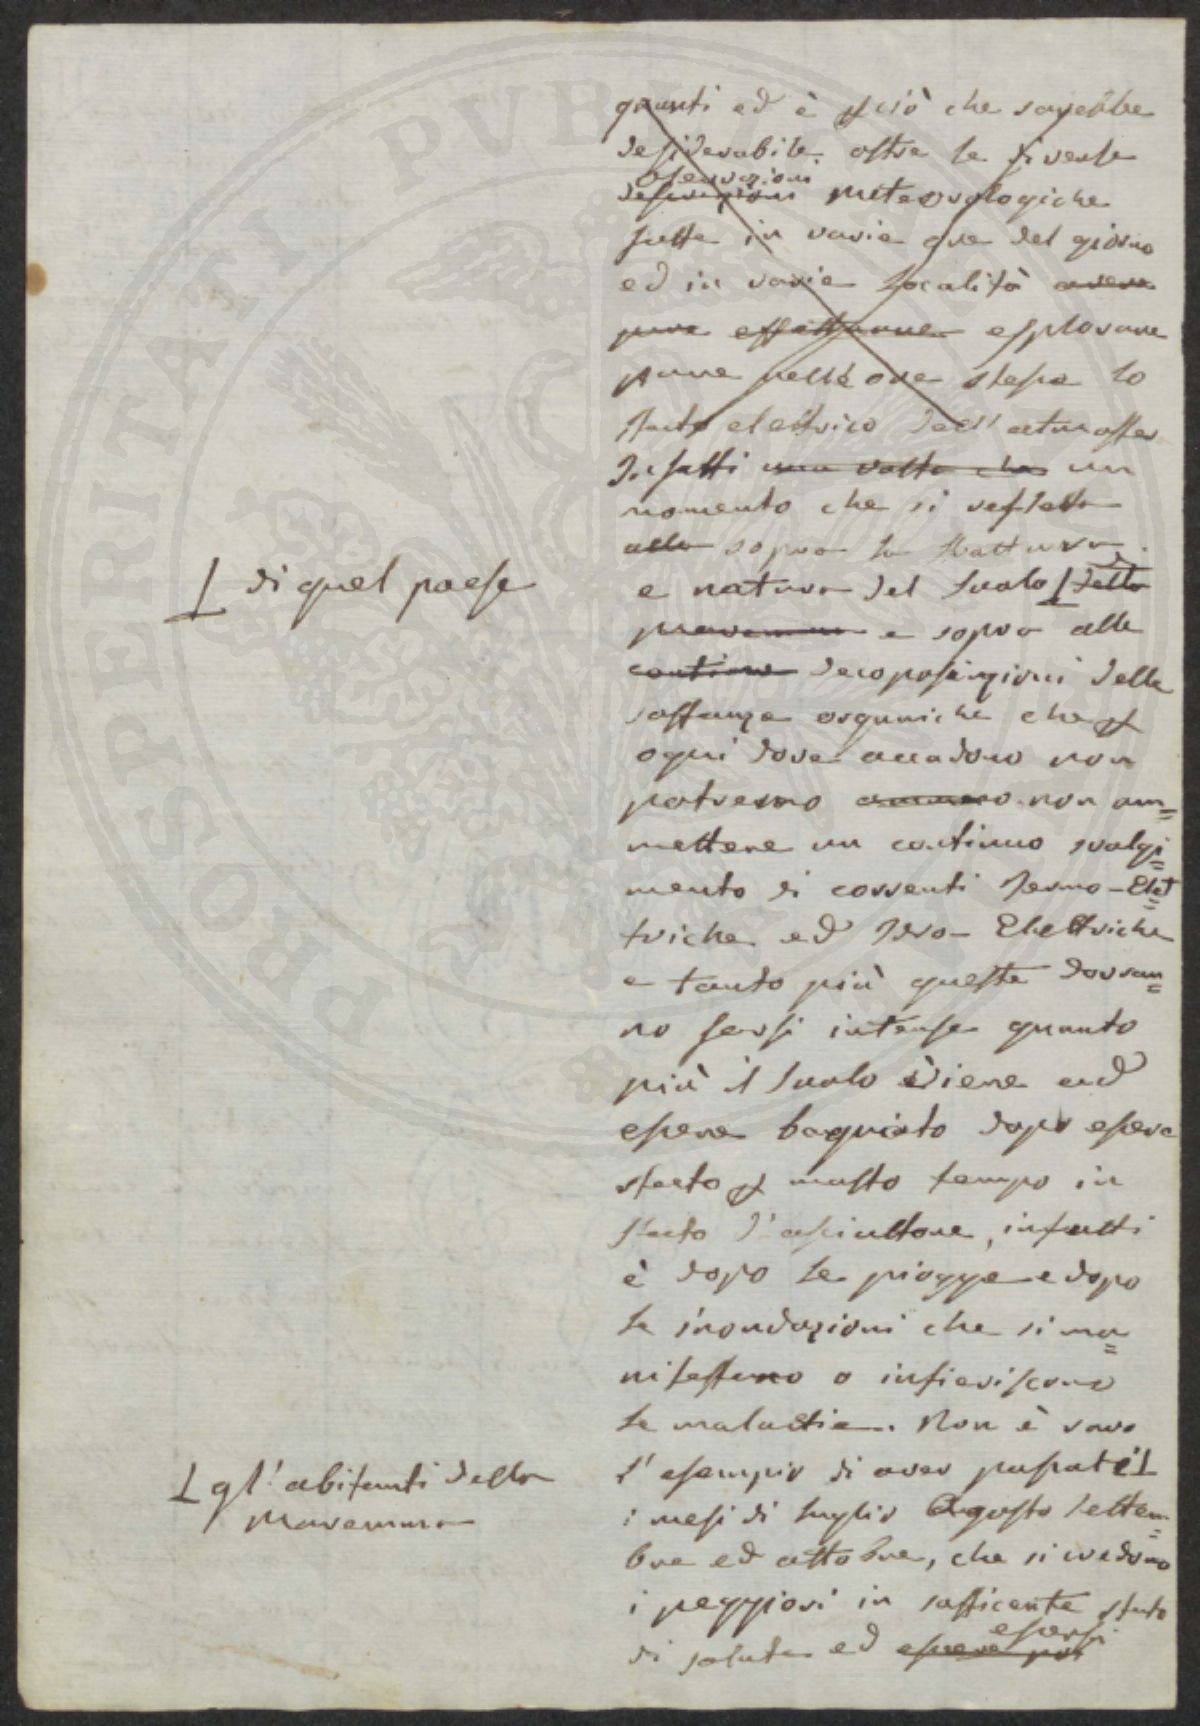 PROSPERITATI PVBLICAE
quanti ed è p ciò che sarebbe
desiderabile. oltre le diverse
osservazioni
descrizioni meteorologiche
fatte in varie ore del giorno
ed in varie località avere
pure effettuare esplorare
pure nelle ore stesse lo
stato elettrico dell'atmosfer
Infatti una volta che un
momento che si refletta
alla sopra la struttura
e natura del suolo ⊥ della
maremma e sopra alle
continue decoposizioni delle
sostanze organiche che p
ogni dove accadono non
potremo ammeno non am=
mettere un continuo svolgi=
mento di correnti Termo-Elet=
triche ed Idro-Elettriche
e tanto più queste dovran=
no farsi intense quanto
più il suolo viene ad
essere bagniato dopo essere
stato p molto tempo in
stato d'asciuttore, infatti
è dopo le piogge e dopo
le inondazioni che si ma=
nifestano o infieriscono
le malattie. Non è raro
l'esempio di aver passati ⊥
i mesi di luglio Agosto settem=
bre ed ottobre, che si credono
i peggiori in sufficente stato
di salute ed essere poi
essersi
⊥ di quel paese
⊥ gl'abitanti della
Maremma